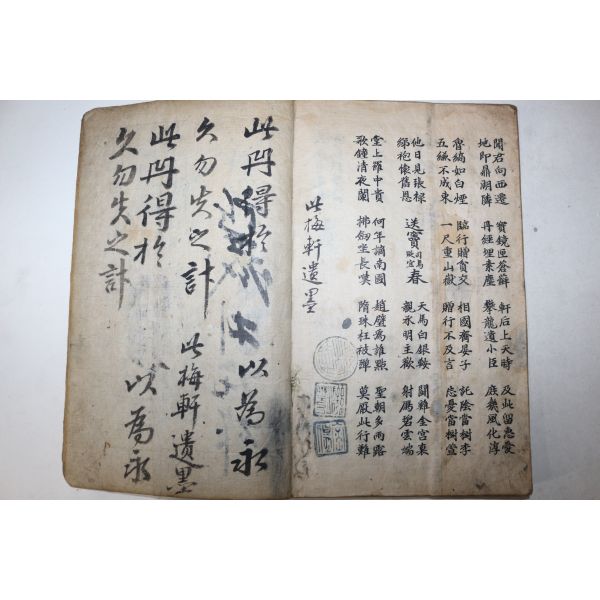 聞君向西遷 寶鏡匣蒼蘚 軒后上天時 及此留惠愛
地即鼎湖隣 丹經埋素塵 攀龍遺小臣 庶幾風化淳
魯縞如白煙 臨行贈貧交 相國齊晏子 託陰當樹李
五縑不成束 一尺重山嶽 贈行不及言 忘憂當樹萱
他日見張祿 送竇司馬貶宜春 天馬白銀鞍 鬪雞金宮裏
綈袍懷舊恩 親承明主歡 射鴈碧雲端
堂上羅中貴 何年謫南國 趙璧為誰點 聖朝多雨露
歌鐘清夜闌 拂劒坐長嘆 隋珠枉被彈 莫厭此行難
此梅軒遺墨
此冊得於 以為永
久勿失之計 此梅軒遺墨
此冊得於 以為永
久勿失之計